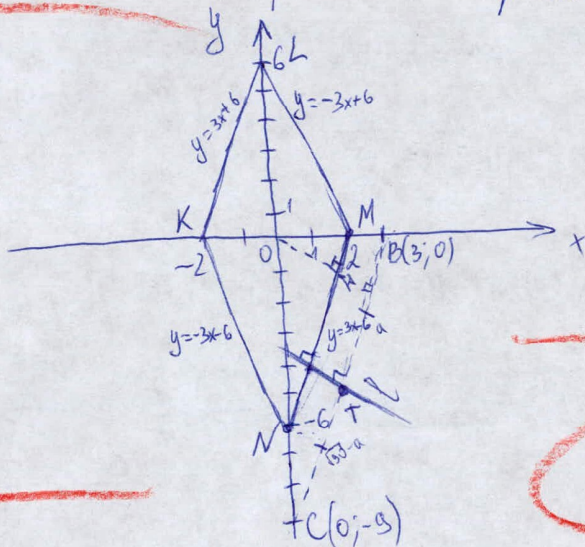 y
6 L
y=3x+6
y=-3x+6
1
K
M
x
-2
0
1
2
B(3; 0)
y=-3x-6
y=3x-6
a
l
T
-6
N
C(0;-9)